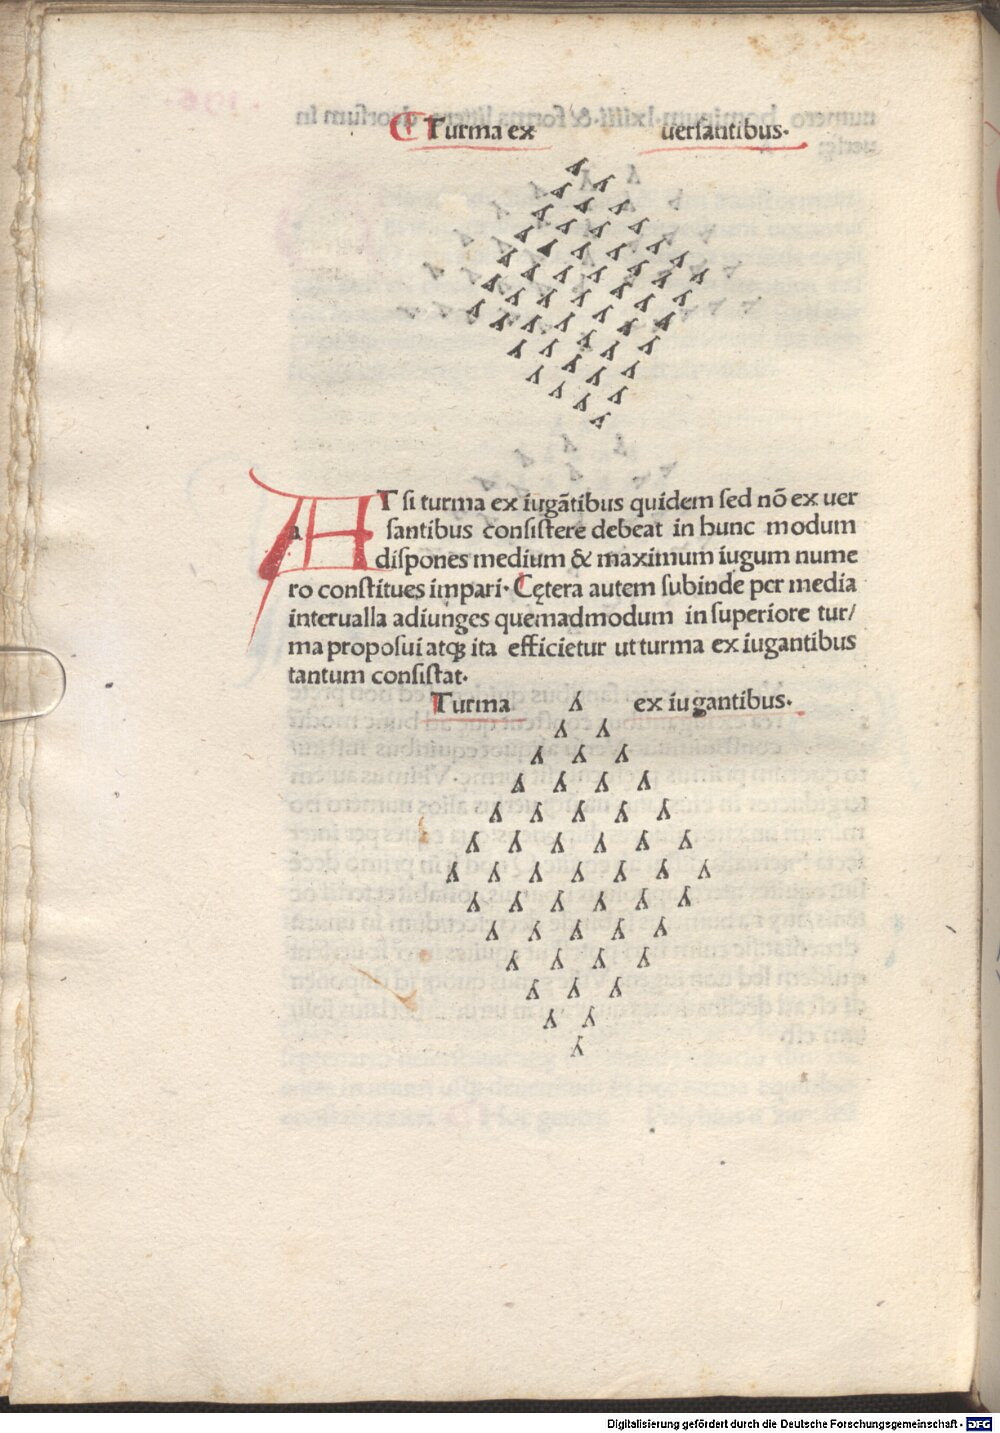 Turma ex uersantibus·
AT si turma ex iugãtibus quidem sed nõ ex uer
santibus consistere debeat in hunc modum
dispones medium & maximum iugum nume
ro constitues impari· Cętera autem subinde per media
interualla adiunges quemadmodum in superiore tur/
ma proposui atqꝫ ita efficietur ut turma ex iugantibus
tantum consistat·
Turma ex iugantibus·
Digitalisierung gefördert durch die Deutsche Forschungsgemeinschaft - DFG